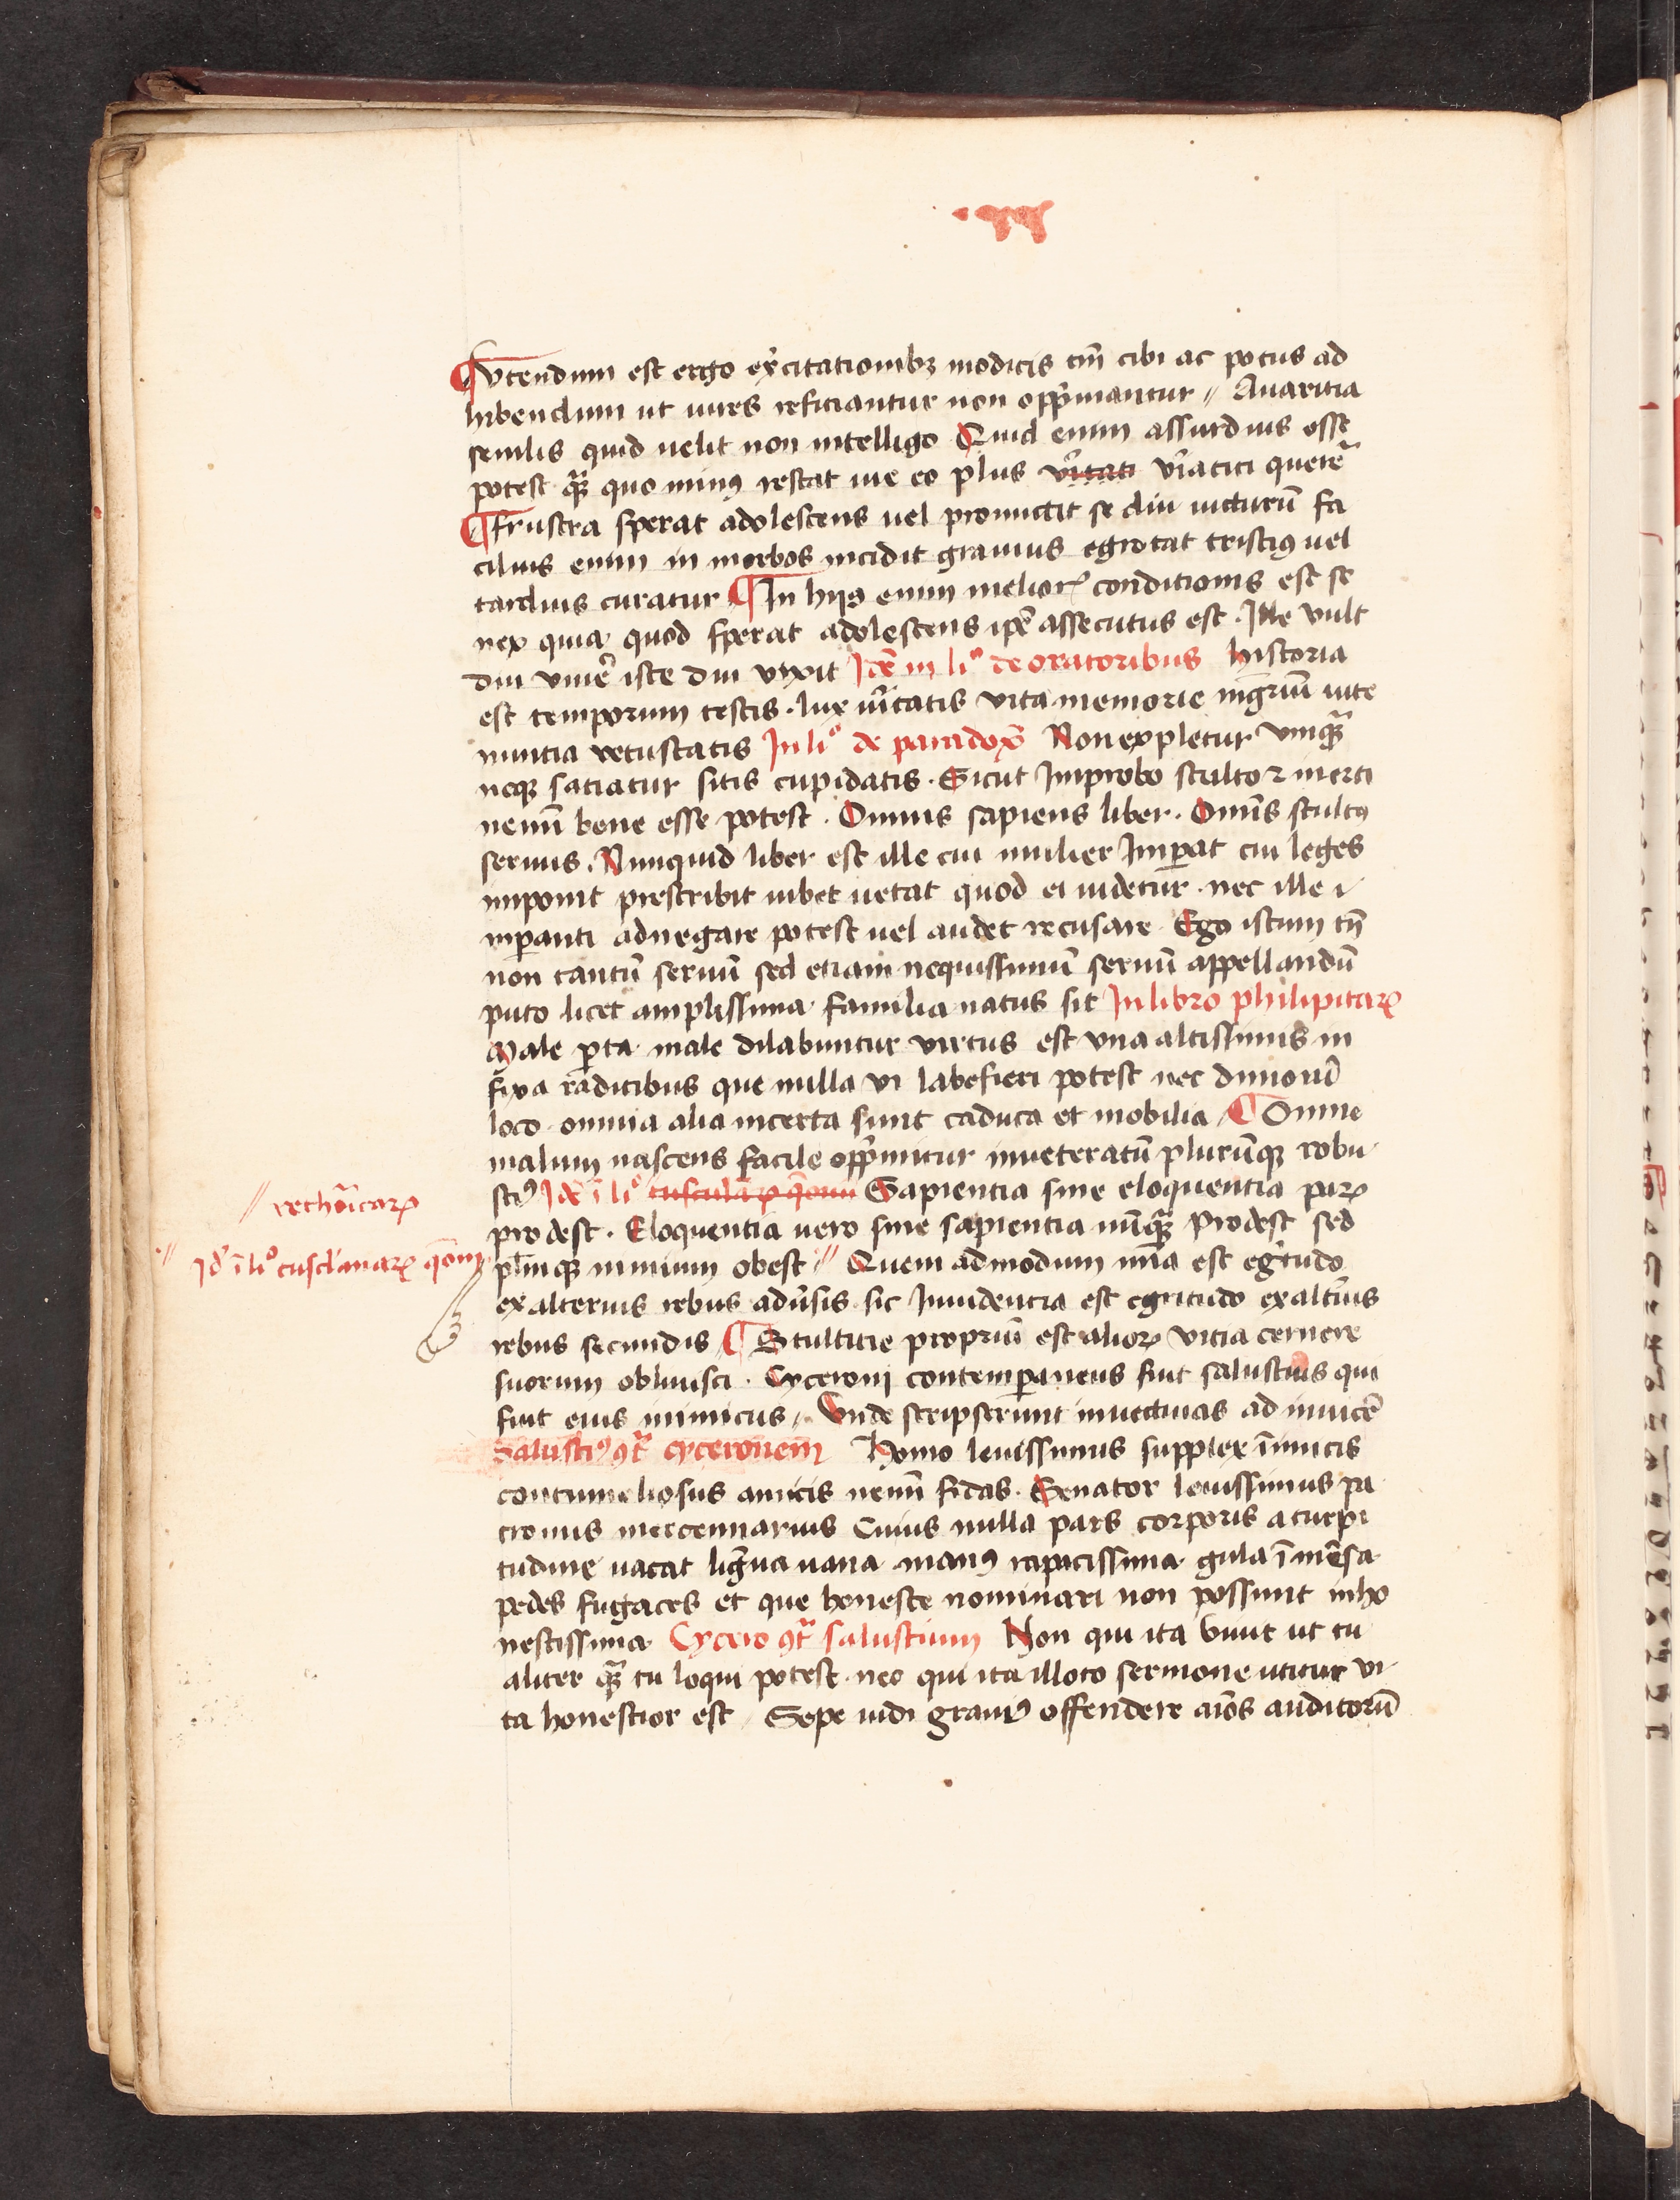 ¶ Vtendum est ergo exercitationibꝫ modicis tm̄ cibi ac potus ad
hibendum ut uires reficiantur non opp̄mantur // Auaritia
senilis quid uelit non intelligo Quid enim assurdius esse
potest qͣ̄ quo minꝰ restat uie eo plus v̓itati v̓iatici querer̄
¶ frustra sperat adolescens uel promictit se diu uicturū fa
cilius enim in morbos incidit grauius egrotat tristiꝰ uel
tardius curatur ¶ In hijs enim melioꝝ conditionis est se
nex quia quod sperat adolescens ip̄e assecutus est . Ille vult
diu viuer̄ iste diu vixit Idē in liº de oratoribus historia
est temporum testis . lux ūitatis vita memorie mgr̄iū uite
nuntia vetustatis In liº de paradox̄ Non expletur vnqͣ̄
neqꝫ satiatur sitis cupidatis . Sicut Improbo stulto ⁊ inerti
nemī bene esse potest . Omnis sapiens liber . Omīs stultꝰ
seruus . Nunquid liber est ille cui mulier Imꝑat cui leges
imponit prescribit iubet uetat quod ei uidetur . nec ille i
mꝑanti adnegare potest uel audet recusare Ego istum tn̄
non tantū seruū sed etiam nequissimū seruū appellandū
puto licet amplissima familia natus sit In libro philipitaꝝ
Male ꝑta male dilabuntur virtus est vna altissimis in
fixa radicibus que nulla vi labefieri potest nec dimoūi
loco omnia alia incerta sunt caduca et mobilia ¶ Omne
malum nascens facile opp̄mitur inueteratū plurūqꝫ robu
stiꝰ Idē ī liº tusculaꝝ q̄onū Sapientia sine eloquentia paꝝ
// rethōicaꝝ
prodest . Eloquentia uero sine sapientia nūqͣ̄ Prodest sed
·// Id̄ ī liº tusclānaꝝ q̄onū
pl̄mqꝫ nimium obest ·// Quem admodum mīa est egritudo
ex alterius rebus adūsis sic Inuidentia est egritudo ex alt̄ius
rebus secundis ¶ Stultitie propriū est alioꝝ vitia cernere
suorum obliuisci . Cyceronj contemꝑaneus fuit salustius qui
fuit eius inimicus // Vnde scripserunt inuectiuas ad inuicē
Salustiꝰ ꝯtͣ cyceronem Homo leuissimus supplex īimicis
contumeliosus amicis nemī fidas . Senator leuissimus pa
tronus mercennarius Cuius nulla pars corporis a turpi
tudine uacat ligua uana manꝰ rapacissima gula īmēsa
pedes fugaces et que honeste nominari non possunt inho
nestissima Cycero ꝯtͣ salustium Non qui ita viuit ut tu
aliter qͣ̄ tu loqui potest nec qui ita illoto sermone utitur vi
ta honestior est // Sepe uidi grauiꝰ offendere aīos auditorū